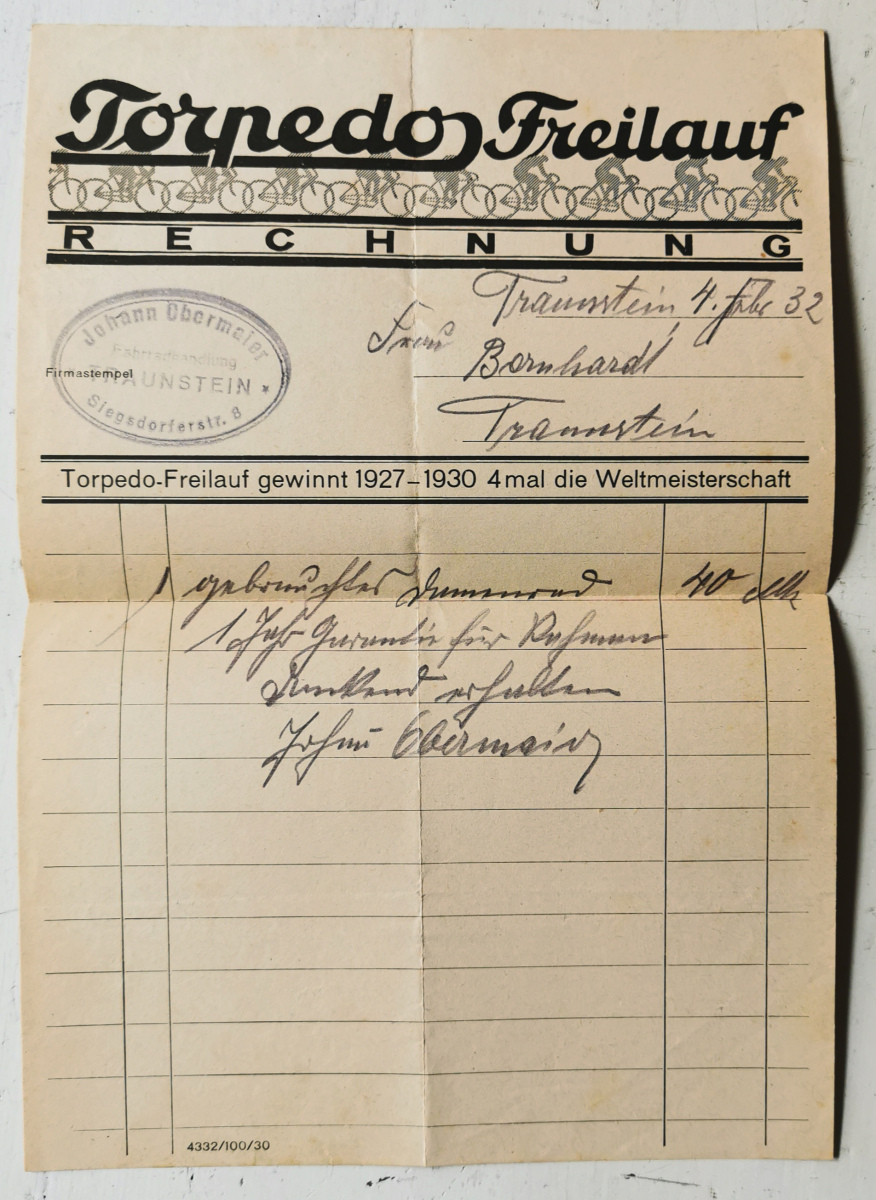 Torpedo Freilauf
RECHNUNG
Traunstein 4. Febr 32
Johann Obermaier
Fahrradhandlung
TRAUNSTEIN *
Siegsdorferstr. 8
Firmastempel
Frau
Bernhardt
Traunstein
Torpedo-Freilauf gewinnt 1927–1930 4mal die Weltmeisterschaft
1 gebrauchtes Damenrad 40 Mk
1 Jahr Garantie für Rahmen
Dankend erhalten
Johann Obermaier
4332/100/30